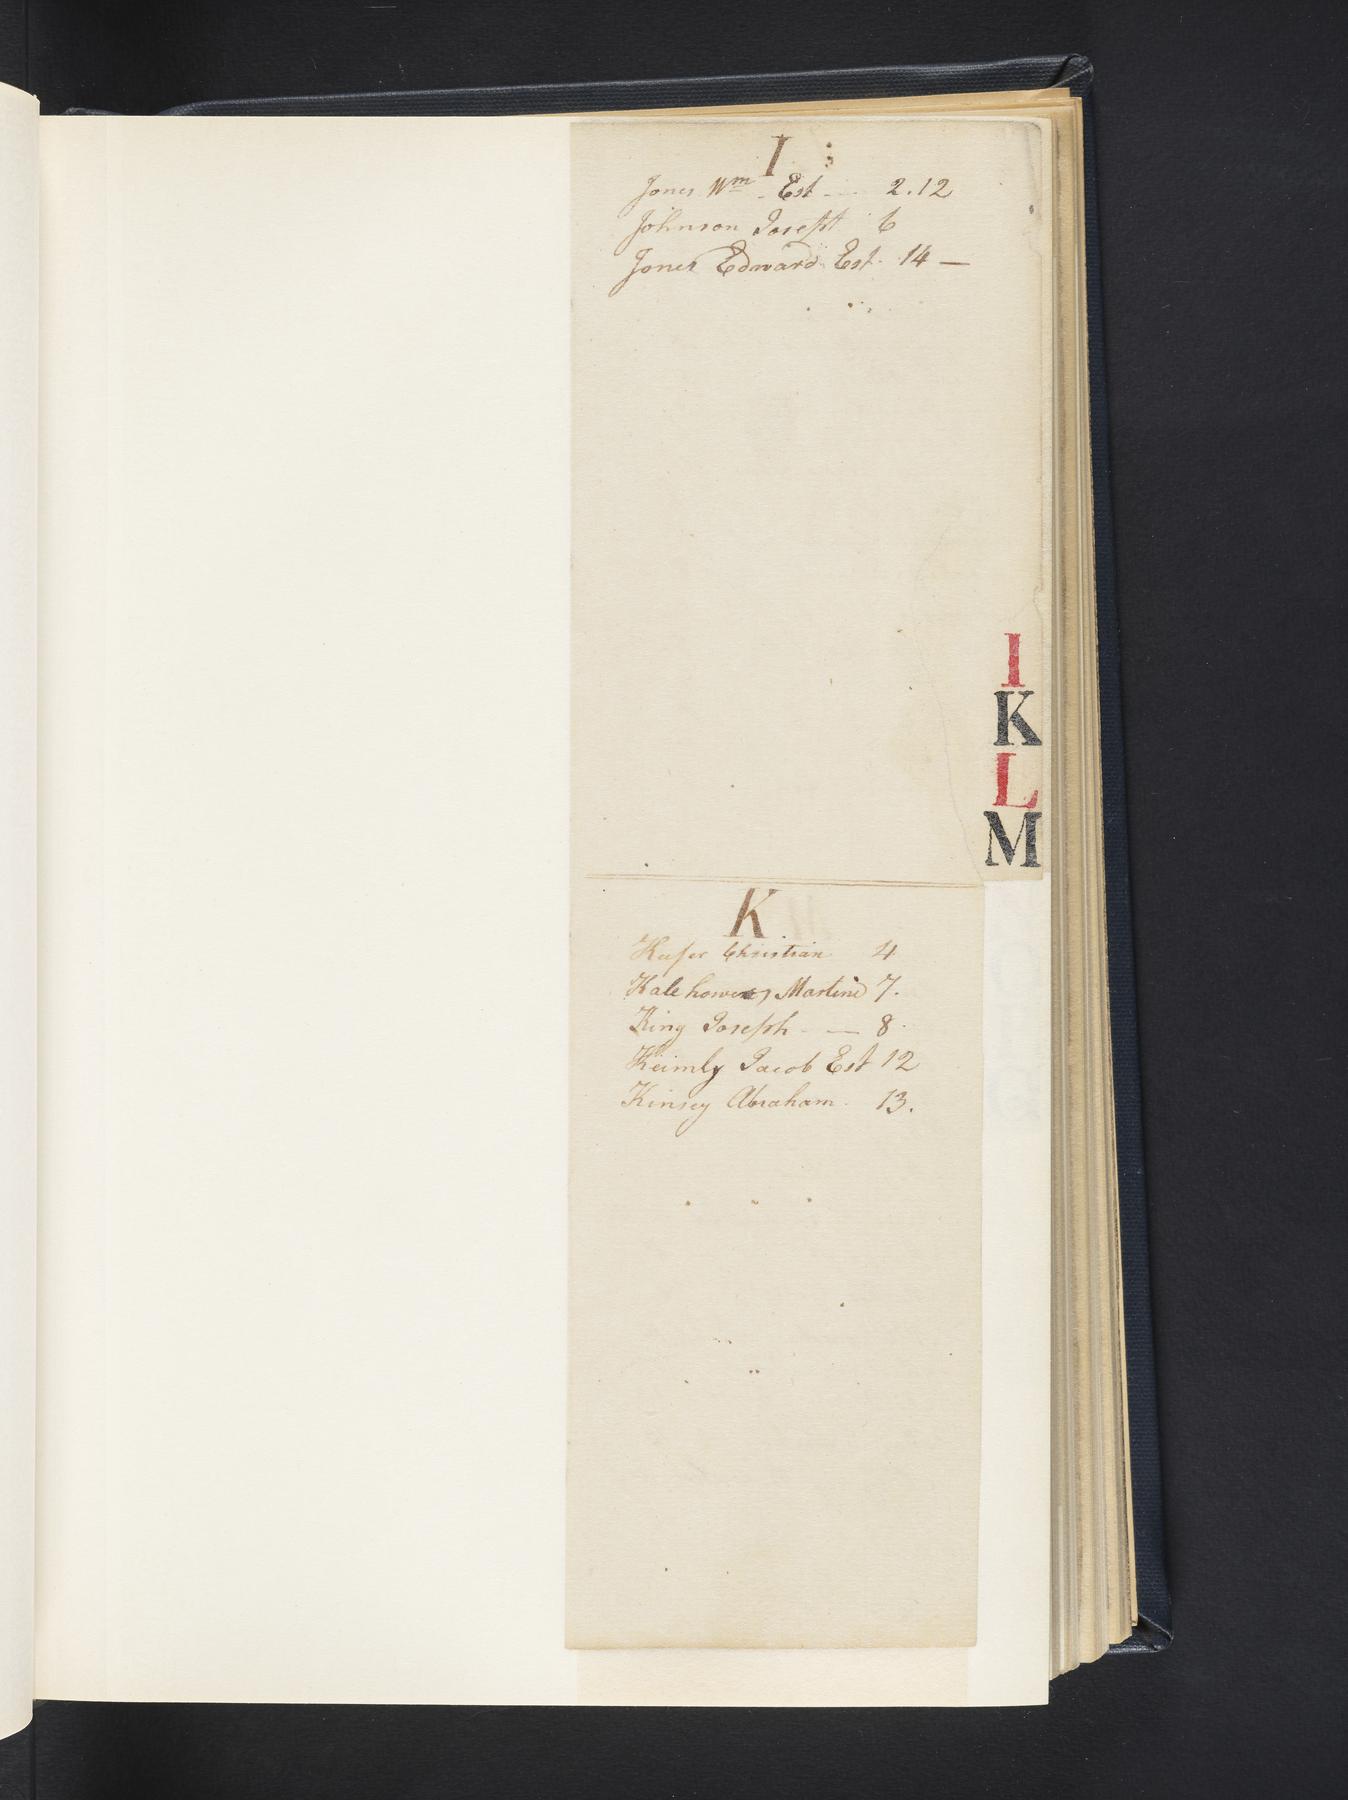 I
Jones Wm Est — 2.12
Johnson Joseph 6
Jones Edward Est 14 —
I
K
L
M
K
Christian 4
Martine 7.
King Joseph - — 8
Keimly Jacob Est 12
Kinsey Abraham 13.